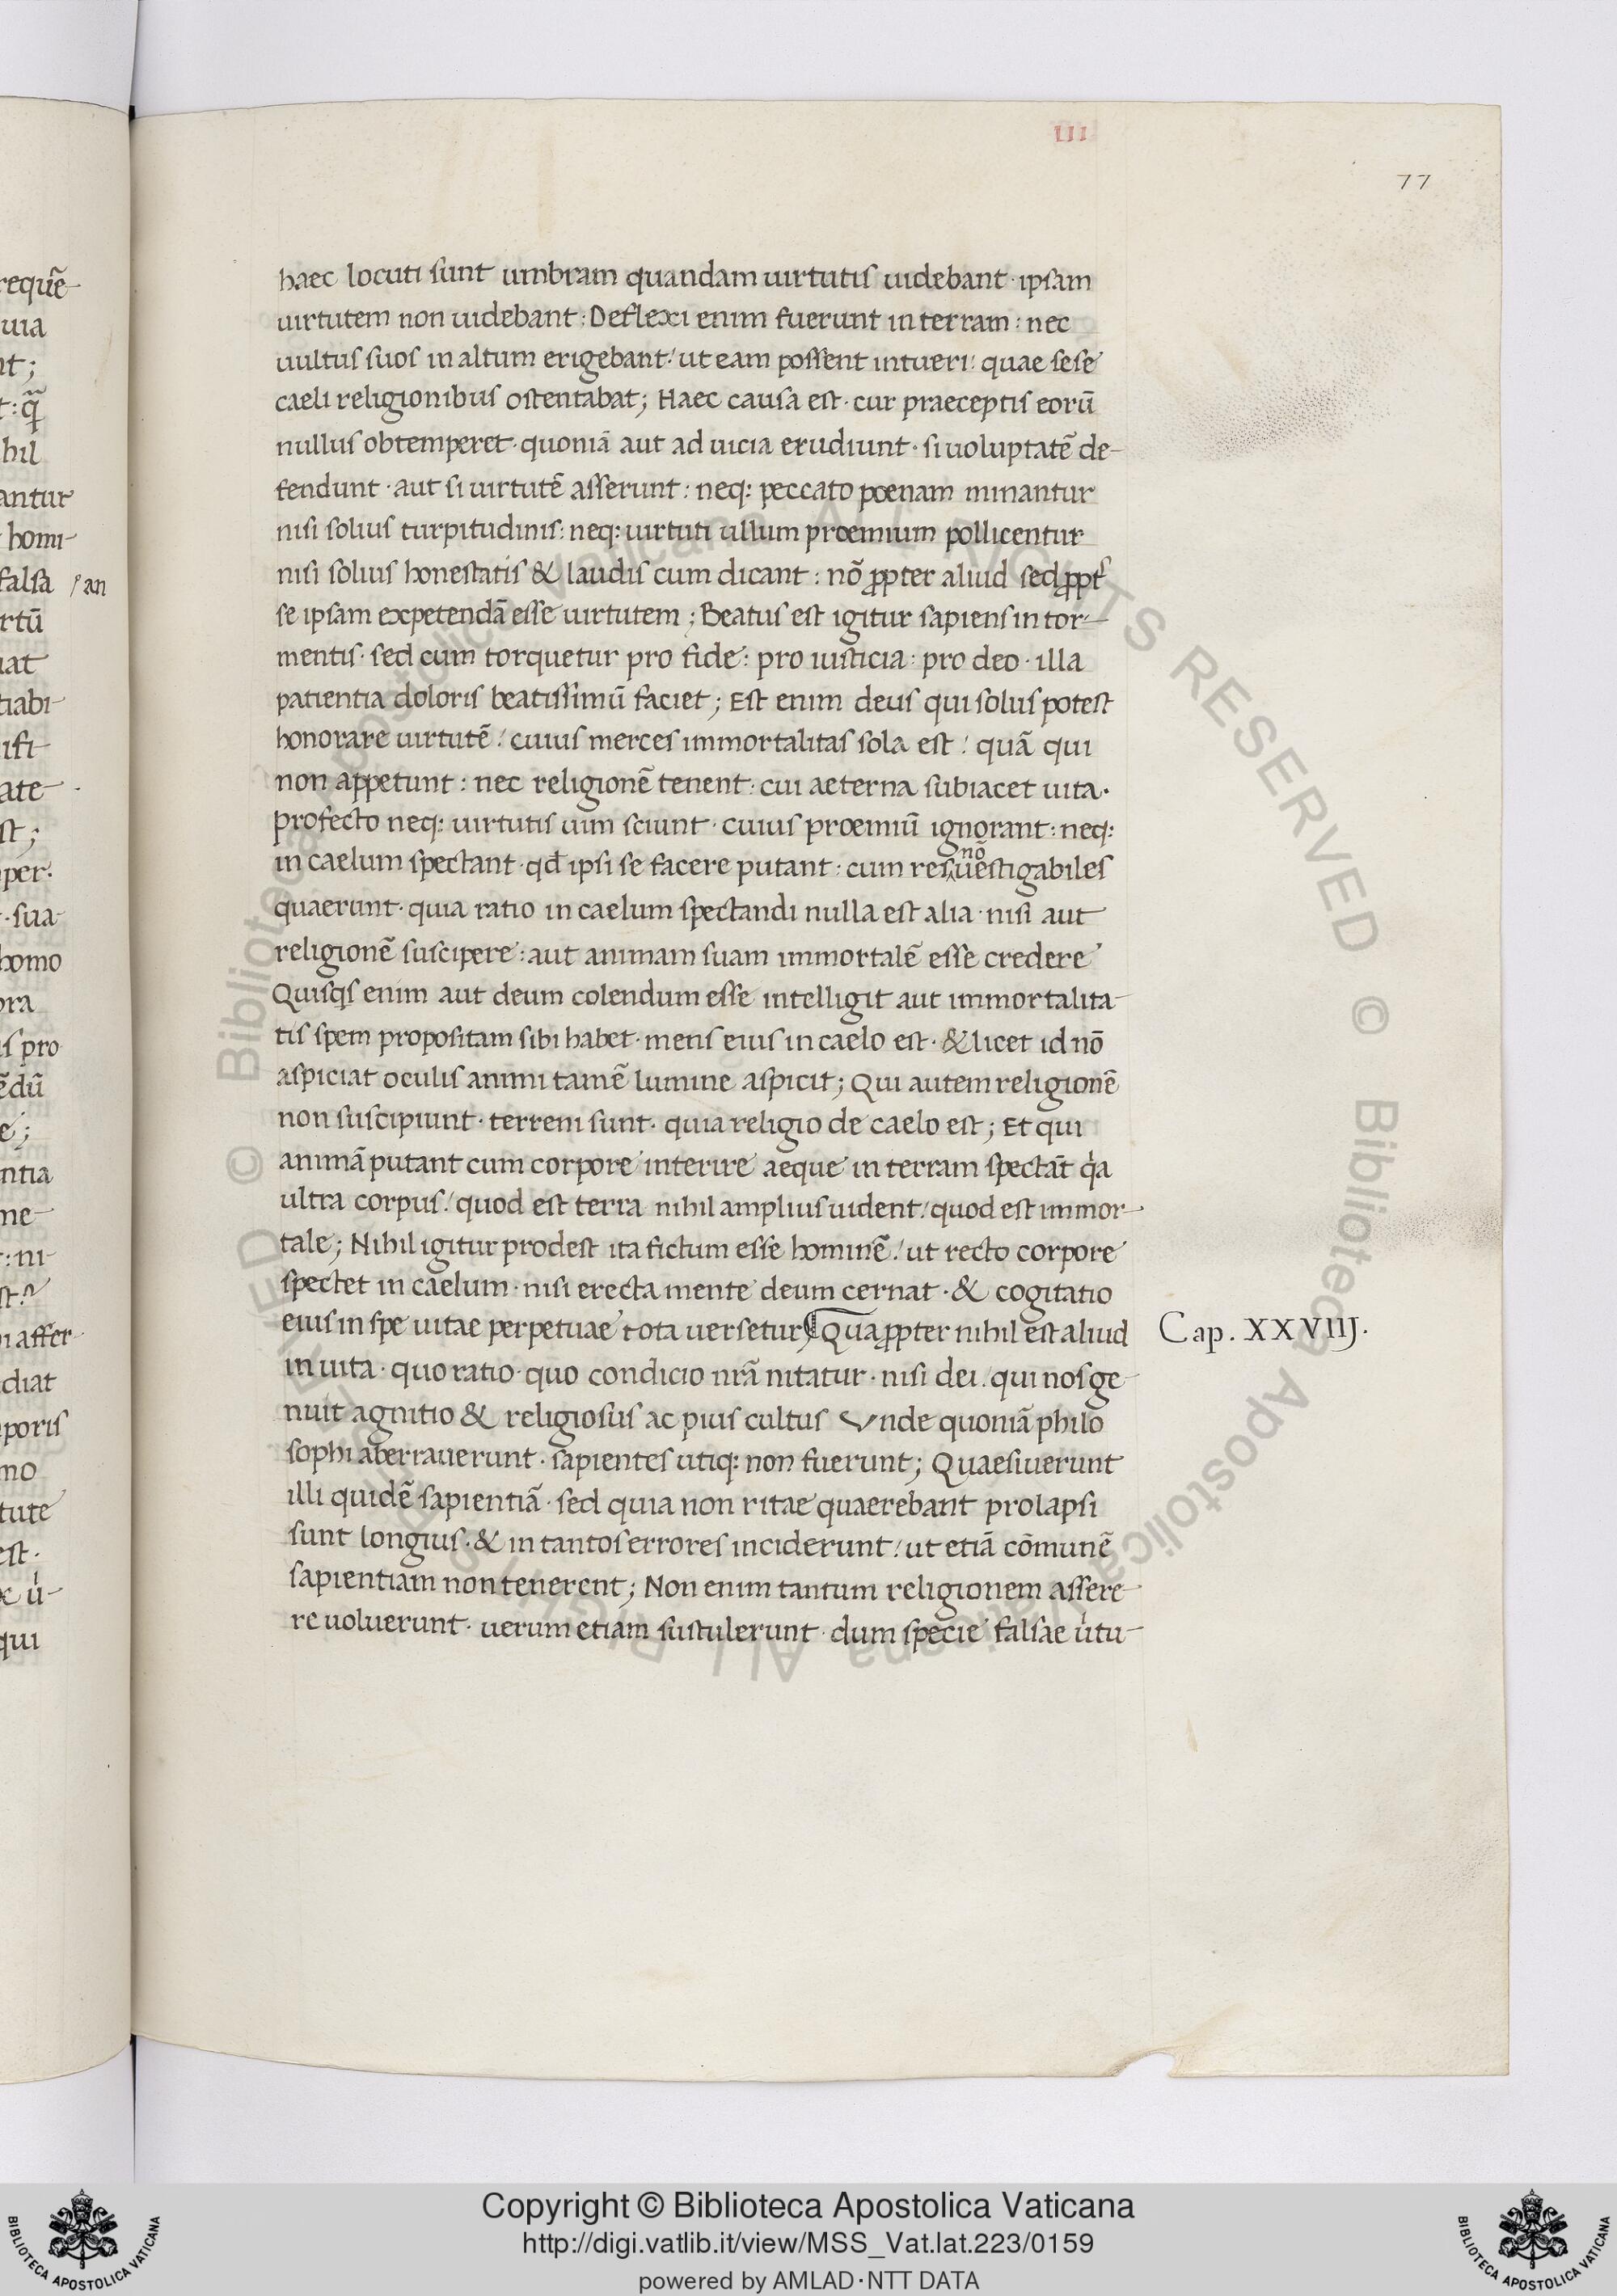 III
77
haec locuti sunt umbram quandam uirtutis uidebant · ipsam
uirtutem non uidebant : Deflexi enim fuerunt in terram : nec
uultus suos in altum erigebant ! ut eam possent intueri : quae sese
caeli religionibus ostentabat ; Haec causa est · cur praeceptis eorũ
nullus obtemperet · quoniã aut ad uicia erudiunt · si uoluptatẽ de-
fendunt · aut si uirtutẽ asserunt : neq; peccato poenam minantur
nisi solius turpitudinis : neq; uirtuti ullum proemium pollicentur
nisi solius honestatis & laudis cum dicant : nõ ꝓpter aliud sed ꝓpt̾
se ipsam expetendã esse uirtutem ; Beatus est igitur sapiens in tor-
mentis · sed cum torquetur pro fide : pro iusticia : pro deo · illa
patientia doloris beatissimũ faciet ; Est enim deus qui solus potest
honorare uirtutẽ ! cuius merces immortalitas sola est ! quã qui
non appetunt : nec religionẽ tenent : cui aeterna subiacet uita ·
profecto neq; uirtutis uim sciunt · cuius proemiũ ignorant : neq;
nõ
in caelum spectant · qđ ipsi se facere putant : cum res uestigabiles
quaerunt · quia ratio in caelum spectandi nulla est alia · nisi aut
religionẽ suscipere : aut animam suam immortalẽ esse credere
Quisqs enim aut deum colendum esse intelligit aut immortalita-
tis spem propositam sibi habet · mens eius in caelo est · & licet id nõ
aspiciat oculis animi tamẽ lumine aspicit ; Qui autem religionẽ
non suscipiunt · terreni sunt · quia religio de caelo est ; Et qui
animã putant cum corpore interire aeque in terram spectãt qͥa
ultra corpus ! quod est terra nihil amplius uident ! quod est immor-
tale ; Nihil igitur prodest ita fictum esse hominẽ ! ut recto corpore
spectet in caelum · nisi erecta mente deum cernat · & cogitatio
eius in spe uitae perpetuae tota uersetur ¶ Quaꝓpter nihil est aliud
Cap. XXVIIJ.
in uita · quo ratio · quo condicio nr̃a nitatur · nisi dei · qui nos ge-
nuit agnitio & religiosus ac pius cultus Vnde quoniã philo
sophi aberrauerunt · sapientes utiq; non fuerunt ; Quaesiuerunt
illi quidẽ sapientiã · sed quia non ritae quaerebant prolapsi
sunt longius · & in tantos errores inciderunt ! ut etiã cõmunẽ
sapientiam non tenerent ; Non enim tantum religionem assere-
re uoluerunt · uerum etiam sustulerunt · dum specie falsae uͥtu-
requẽ-
uia
nt ;
t : q̃
hil
antur
homi-
falsa / an
rtũ
uat
tiabi-
ifi-
ate-
st ;
per :
· sua-
homo
ora
is pro
ẽdũ
e ;
ntia
me-
: ni-
st ?
ni affer-
diat
poris
mo
tute
est ·
uͥ-
qui
© Biblioteca Apostolica Vaticana ALL RIGHTS RESERVED
Copyright © Biblioteca Apostolica Vaticana
http://digi.vatlib.it/view/MSS_Vat.lat.223/0159
powered by AMLAD·NTT DATA
BIBLIOTECA APOSTOLICA VATICANA
BIBLIOTECA APOSTOLICA VATICANA